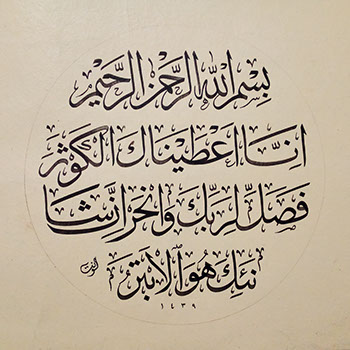 بِسْمِ اللهِ الرَّحْمٰنِ الرَّحِيْمِ
اِنَّا اَعْطَيْنَاكَ الْكَوْثَرَ
فَصَلِّ لِرَبِّكَ وَانْحَرْ اِنَّ شَا
نِئَكَ هُوَ الْاَبْتَرُ
١٤٣٩